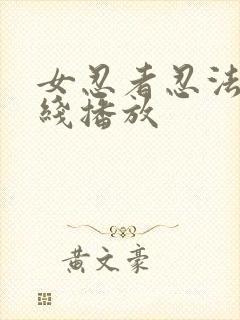 女忍者忍法
綫播放
黃文豪